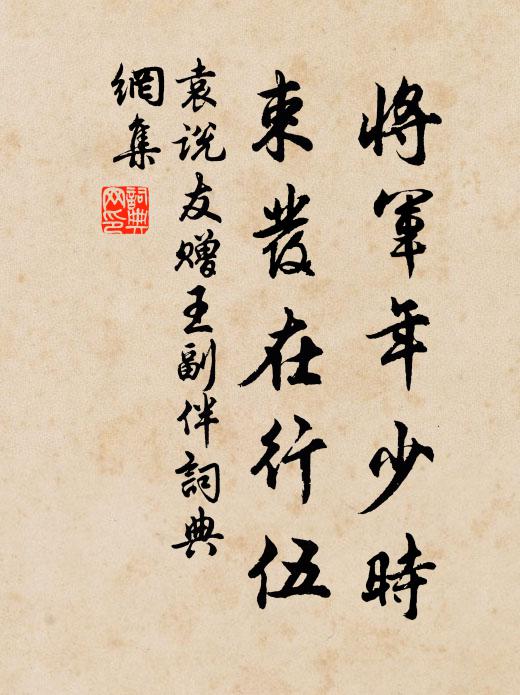 將軍年少時
束發在行伍
袁说友赠王副伴詞典
網集
詞典
网印